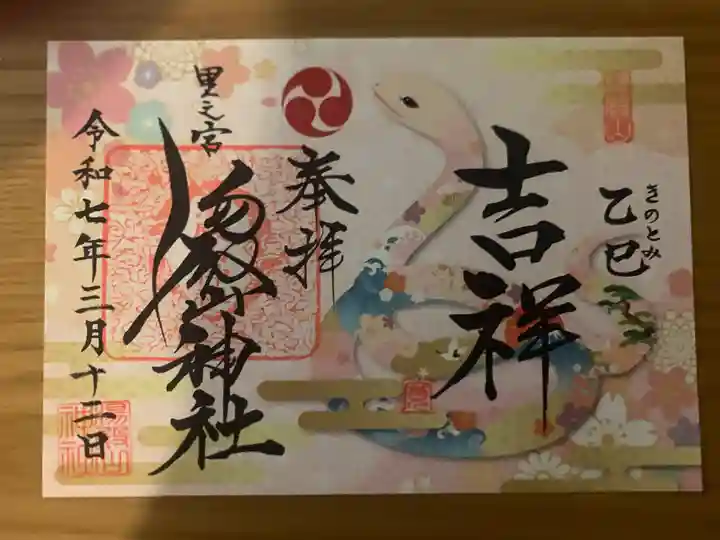 きのとみ
乙巳
吉祥
奉拝
里之宮
湯殿山神社
令和七年三月十二日
湯殿山
神社